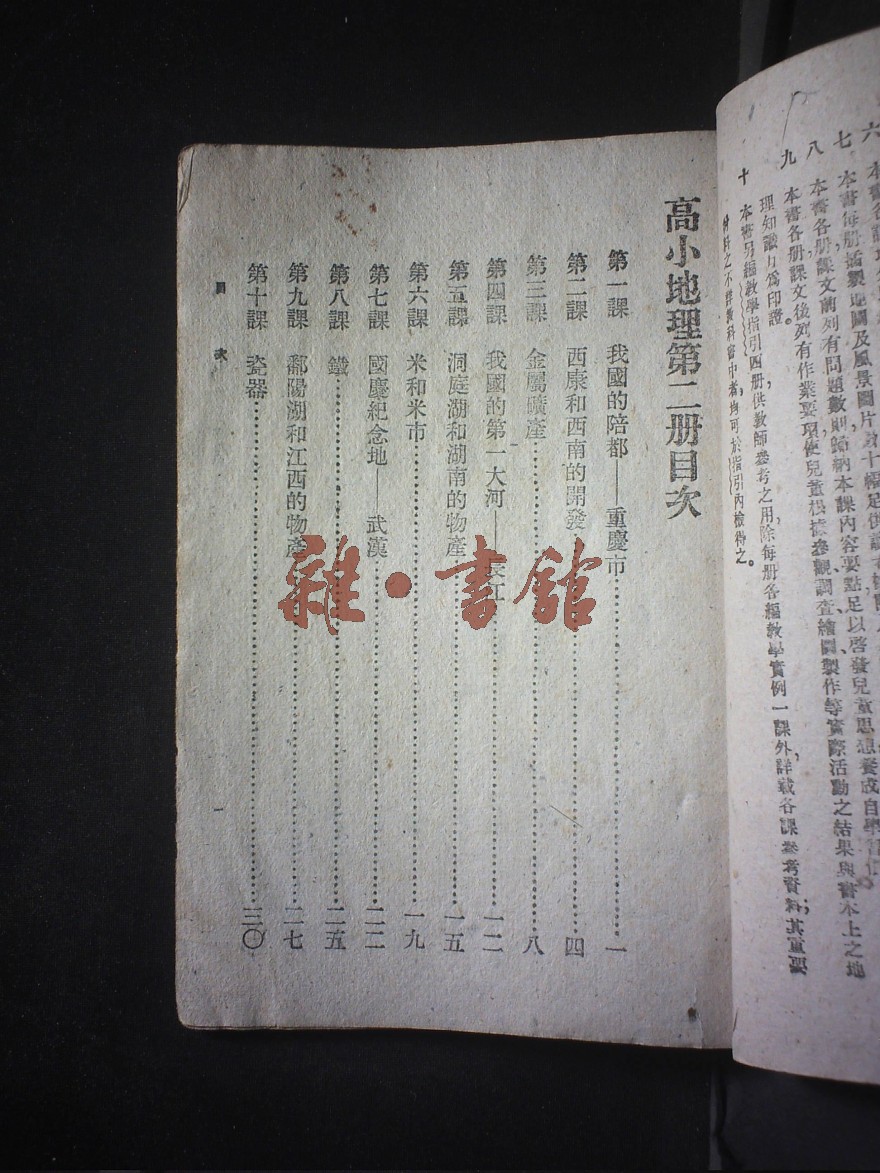 本書各
本書每册插製地圖及風景圖片數十幅足供
本書各册課文前列有問題數則歸納本課內容要點足以啓發兒童思想養成自學
本書各册課文後列有作業要項使兒童根據參觀調查繪圖製作等實際活動之結果與書本上之地
理知識互爲印證。
十 本書另編教學指引四册供教師參考之用除每册各編教學實例一課外詳載各課參考資料其重要
材料之不詳教科書中者均可於指引內檢得之。
六
七
八
九
高小地理第二册目次
第一課 我國的陪都——重慶市 一
第二課 西康和西南的開發 四
第三課 金屬礦產 八
第四課 我國的第一大河——長江 一二
第五課 洞庭湖和湖南的物產 一五
第六課 米和米市 一九
第七課 國慶紀念地——武漢 二二
第八課 鐵 二五
第九課 鄱陽湖和江西的物產 二七
第十課 瓷器 三〇
目次 一
雜·書館